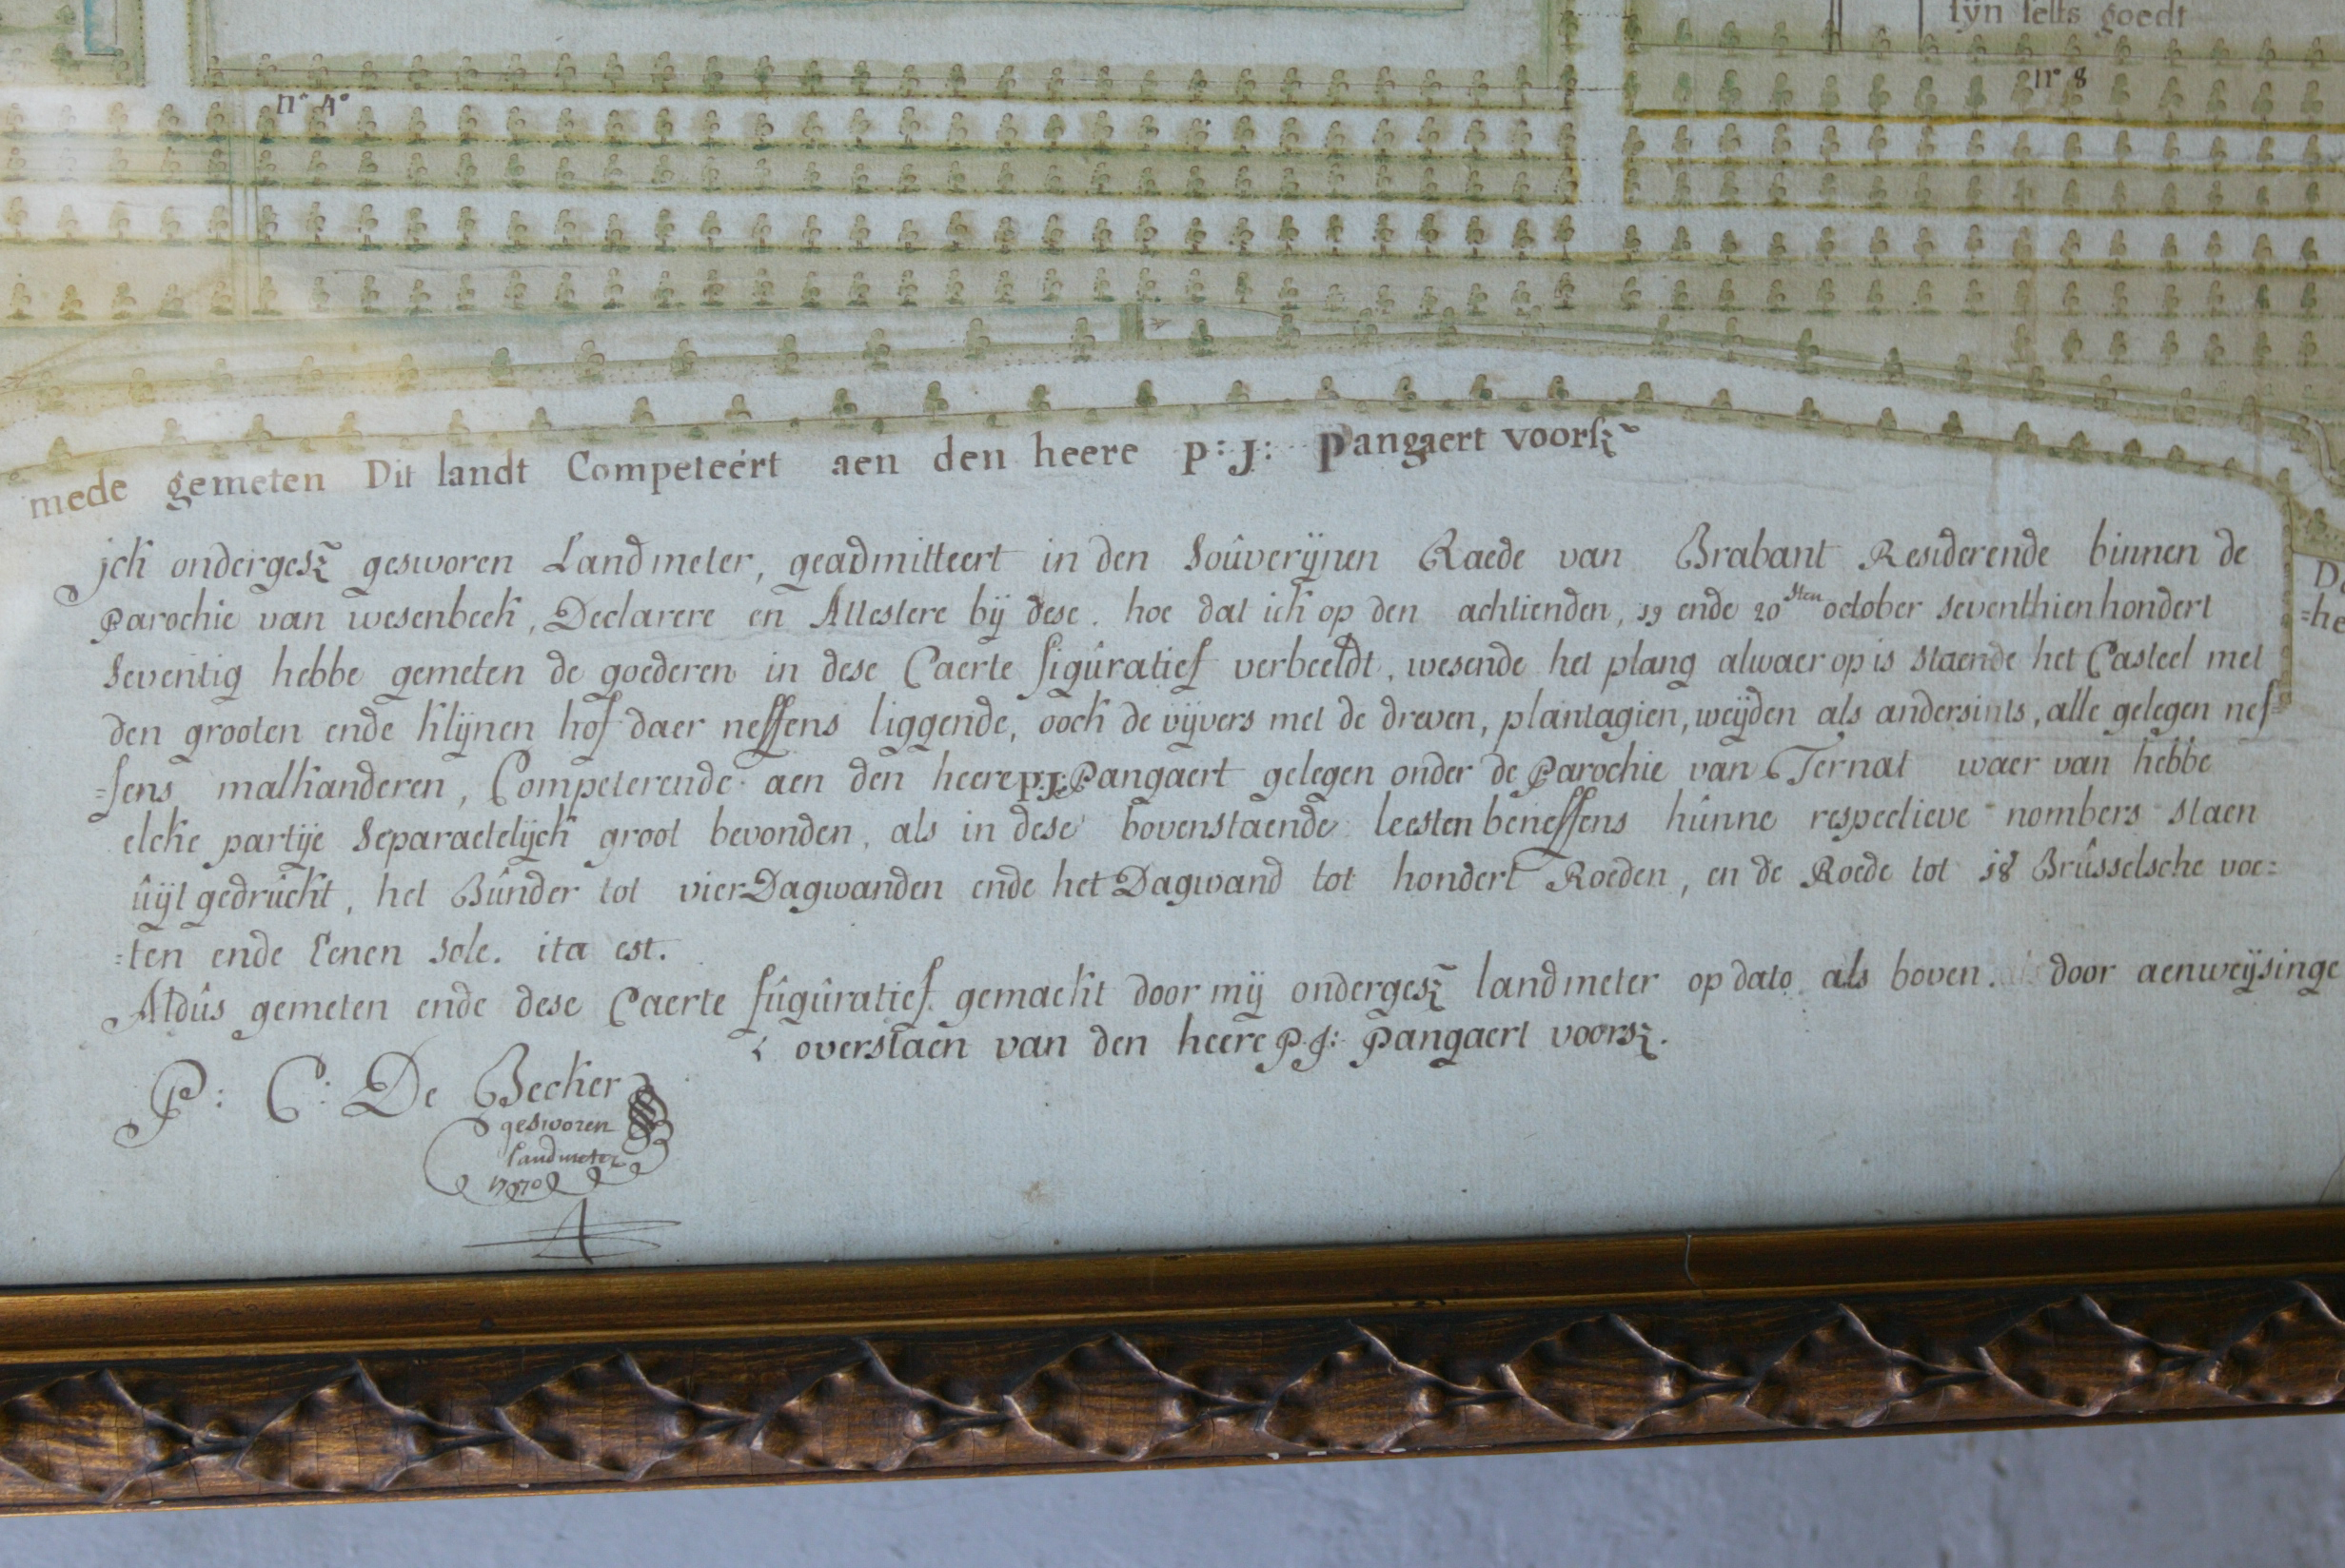 sÿn selfs goedt
nº 4º
nº 8
mede gemeten Dit landt Competeért aen den heere P: J: Pangaert voorsz̃
jck ondergesz̃ gesworen Landmeter, geadmitteert in den Soûverijnen Raede van Brabant Residerende binnen de
Parochie van wesenbeek, Declarere en Attestere bij dese. hoe dat ick op den achtienden, 19 ende 20sten october seventhien hondert
Seventig hebbe gemeten de goederen in dese Caerte figûratief verbeeldt, wesende het plang alwaer op is staende het Casteel met
den grooten ende klijnen hof daer neffens liggende, oock de vijvers met de dreven, plantagien, weijden als andersints, alle gelegen nef=
=fens malkanderen, Competerende aen den heere P:J: Pangaert gelegen onder de Parochie van Ternat waer van hebbe
elcke partije Separaetelijck groot bevonden, als in dese bovenstaende leesten beneffens hûnne respectieve nombers staen
ûijt gedrûckt, het Bûnder tot vier Dagwanden ende het Dagwand tot hondert Roeden, en de Roede tot 18 Brûsselsche voe=
=ten ende Eenen Sole. ita est.
Aldûs gemeten ende dese Caerte fûgûratief gemaekt door mij ondergesz̃ landmeter op dato als boven. door aenweijsinge
overstaen van den heere P.J: Pangaert voorsz.
P: C: De Becker
gesworen
Landmeter
1770
D
=he